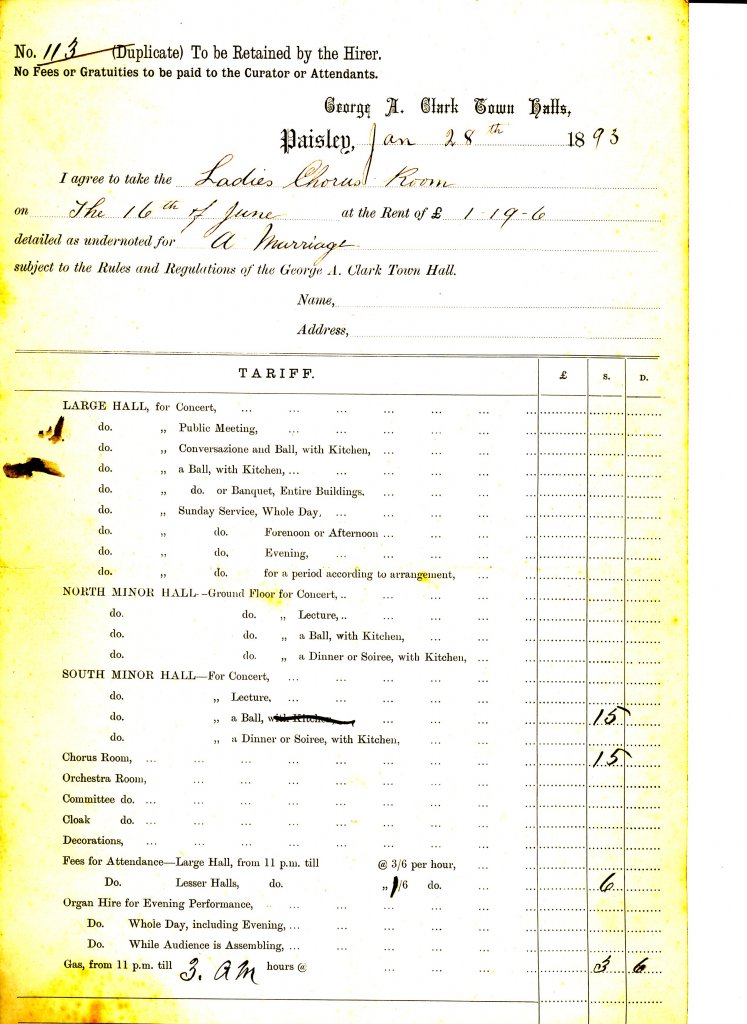 No. 113 (Duplicate) To be Retained by the Hirer.
No Fees or Gratuities to be paid to the Curator or Attendants.
George A. Clark Town Halls,
Paisley, Jan 28th 1893
I agree to take the Ladies Chorus Room
on The 16th of June at the Rent of £ 1-19-6
detailed as undernoted for A Marriage
subject to the Rules and Regulations of the George A. Clark Town Hall.
Name,
Address,
TARIFF. £ S. D.
LARGE HALL, for Concert, ... ... ... ... ... ... ...
do. „ Public Meeting, ... ... ... ... ... ...
do. „ Conversazione and Ball, with Kitchen, ... ... ... ...
do. „ a Ball, with Kitchen, ... ... ... ... ... ...
do. „ do. or Banquet, Entire Buildings. ... ... ... ...
do. „ Sunday Service, Whole Day, ... ... ... ... ...
do. „ do. Forenoon or Afternoon ... ... ... ...
do. „ do, Evening, ... ... ... ... ...
do. „ do. for a period according to arrangement, ... ...
NORTH MINOR HALL--Ground Floor for Concert, .. ... ... ... ...
do. do. „ Lecture, .. ... ... ... ...
do. do. „ a Ball, with Kitchen, ... ... ...
do. do. „ a Dinner or Soiree, with Kitchen, ... ...
SOUTH MINOR HALL—For Concert, ... ... ... ... ... ...
do. „ Lecture, ... ... ... ... ... ...
do. „ a Ball, with Kitchen, ... ... ... ... 15
do. „ a Dinner or Soiree, with Kitchen, ... ... ...
Chorus Room, ... ... ... ... ... ... ... ... ... 15
Orchestra Room, ... ... ... ... ... ... ... ...
Committee do. ... ... ... ... ... ... ... ... ...
Cloak do. ... ... ... ... ... ... ... ... ...
Decorations, ... ... ... ... ... ... ... ...
Fees for Attendance—Large Hall, from 11 p.m. till @ 3/6 per hour, ... ...
Do. Lesser Halls, do. „ 1/6 do. ... ... 6
Organ Hire for Evening Performance, ... ... ... ... ... ...
Do. Whole Day, including Evening, ... ... ... ... ... ...
Do. While Audience is Assembling, ... ... ... ... ... ...
Gas, from 11 p.m. till 3. AM hours @ ... ... ... ... 3 6